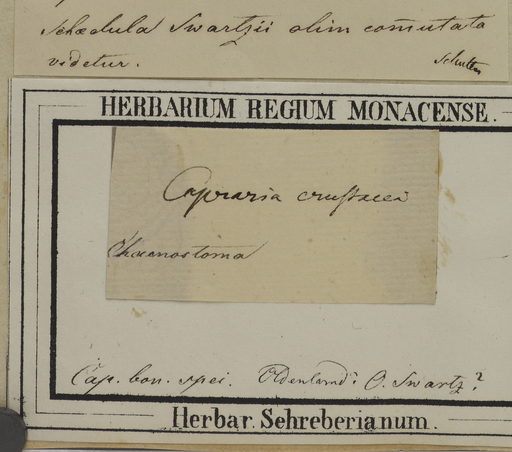 Schedula Swartzii olim com̄utata
videtur.
HERBARIUM REGIUM MONACENSE.
Capraria crustacea
Chaenostoma
Cap. bon. spei. Oldenland? O. Swartz?
Herbar. Schreberianum.